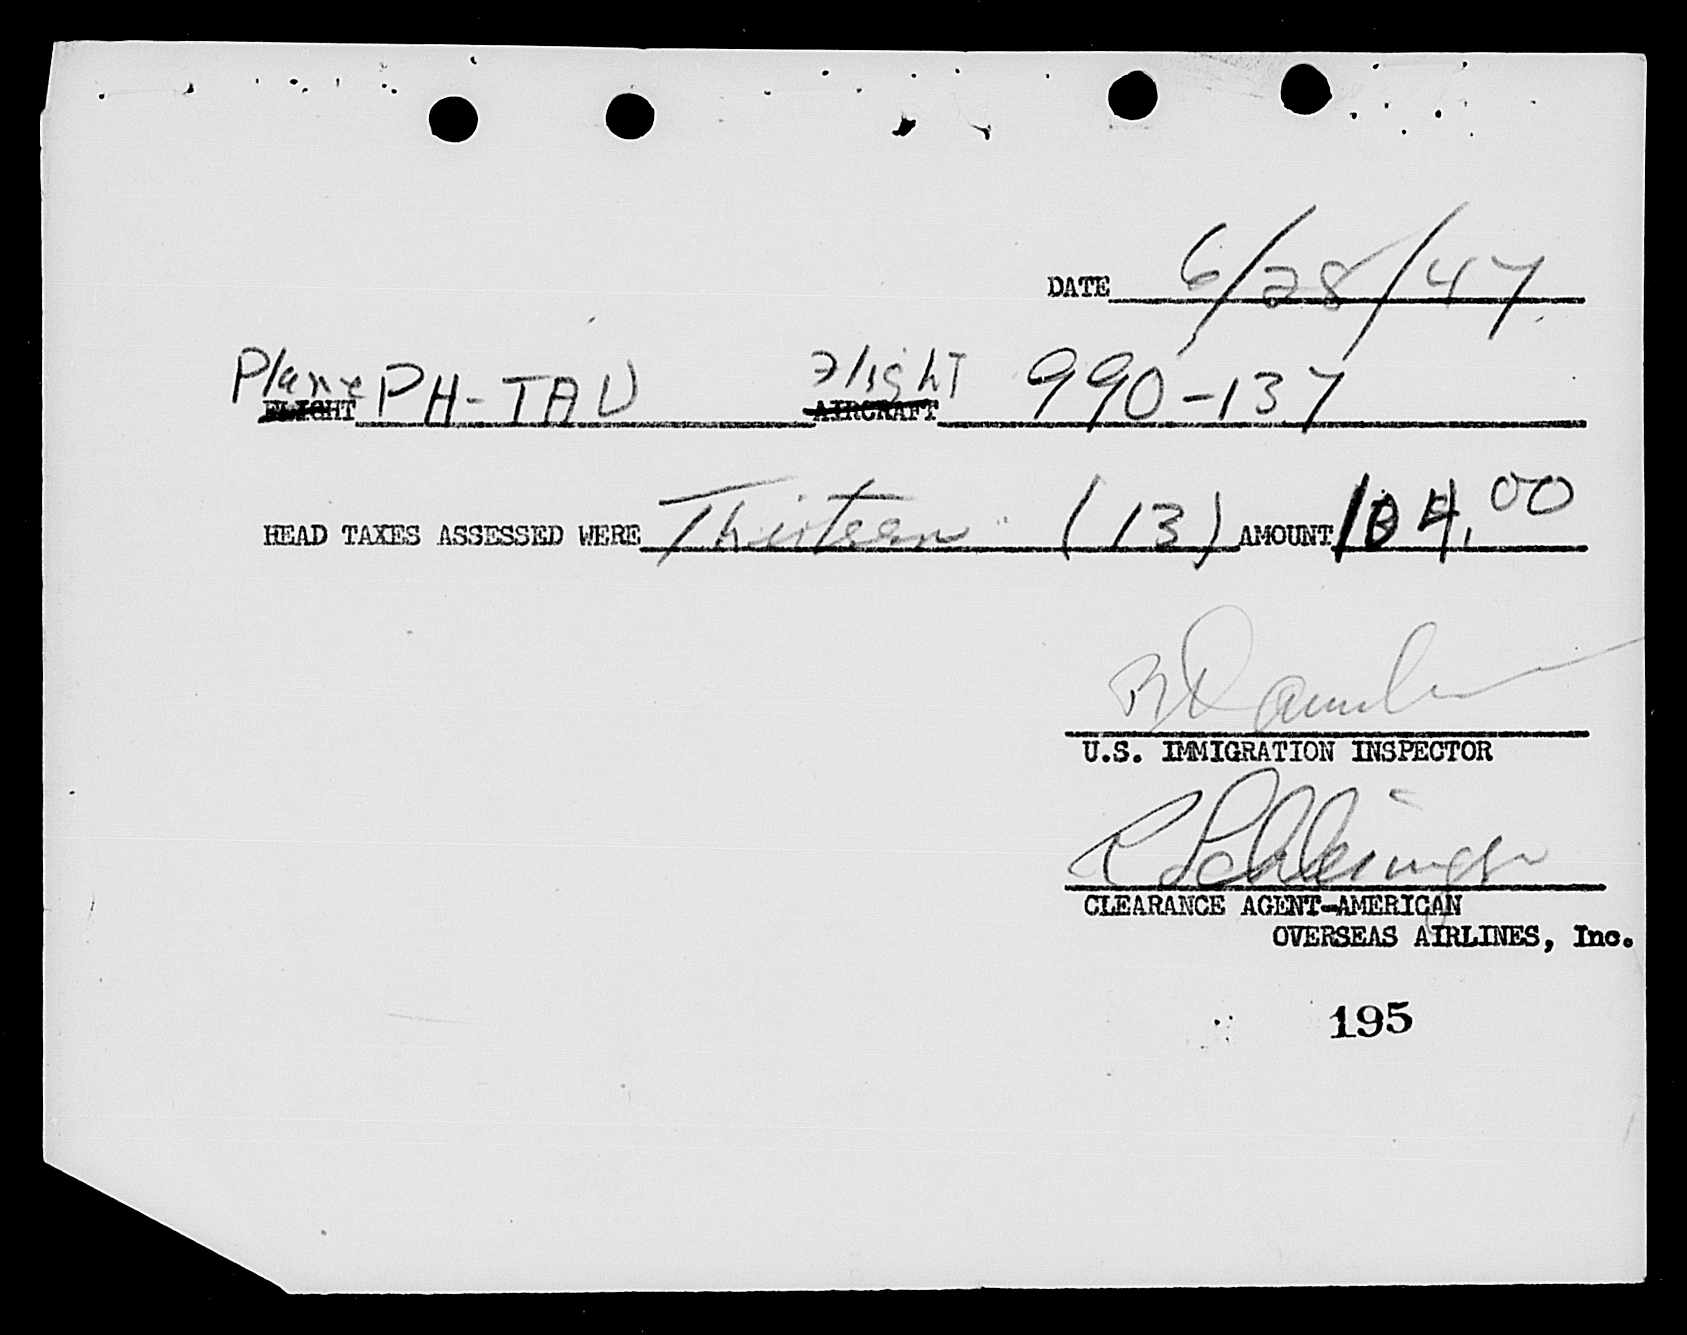 DATE 6/28/47
Plane FLIGHT PH-TAU Flight AIRCRAFT 990-137
HEAD TAXES ASSESSED WERE Thirteen (13) AMOUNT 104.00
U.S. IMMIGRATION INSPECTOR
R Schlesinger
CLEARANCE AGENT-AMERICAN
OVERSEAS AIRLINES, Inc.
195